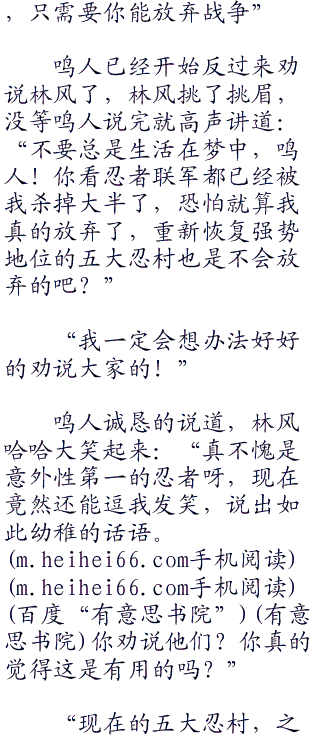 ，只需要你能放弃战争”
鸣人已经开始反过来劝
说林风了，林风挑了挑眉，
没等鸣人说完就高声讲道：
“不要总是生活在梦中，鸣
人！你看忍者联军都已经被
我杀掉大半了，恐怕就算我
真的放弃了，重新恢复强势
地位的五大忍村也是不会放
弃的吧？”
“我一定会想办法好好
的劝说大家的！”
鸣人诚恳的说道，林风
哈哈大笑起来：“真不愧是
意外性第一的忍者呀，现在
竟然还能逗我发笑，说出如
此幼稚的话语。
(m.heihei66.com手机阅读)
(m.heihei66.com手机阅读)
(百度“有意思书院”)(有意
思书院)你劝说他们？你真的
觉得这是有用的吗？”
“现在的五大忍村，之